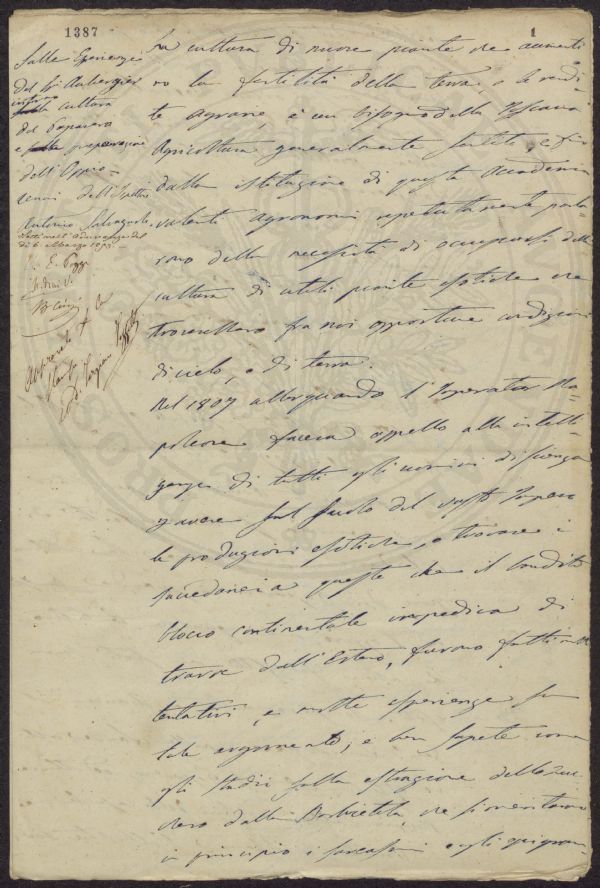 1387
1
Sulle Esperienze
del Sr Aubergier
intorno
alla cultura
del Papavero
e sulla preparazione
dell'Oppio
Antonio Salvagnoli
Letta nell'Adunanza del
di 6 Marzo 1853
E. Poggi
Approvato
La cultura di nuove piante che aumenti
no la fertilità della terra, e le rendi
te agrarie, è un bisogno della Toscana
Agricoltura generalmente sentito, e fino
dalla istituzione di questa Accademia
valenti agronomi repetutamente parla
rono della necessità di occuparsi della
cultura di utili piante esotiche che
trovassero fra noi opportune condizioni
di cielo, e di terra.
Nel 1807 allorquando l'Imperator Na
poleone faceva appello alla intelli
genza di tutti gli uomini di scienza
per avere sul suolo del vasto Impero
le produzioni esotiche, o trovare i
succedanei a queste che il
blocco continentale impediva di
trarre dall'Estero, furono fatti
tentativi, e molte esperienze su
tale argomento; e ben sapete come
gli studii sulla estrazione dello zuc
chero dalla Barbietola, che
in principio i sarcasmi